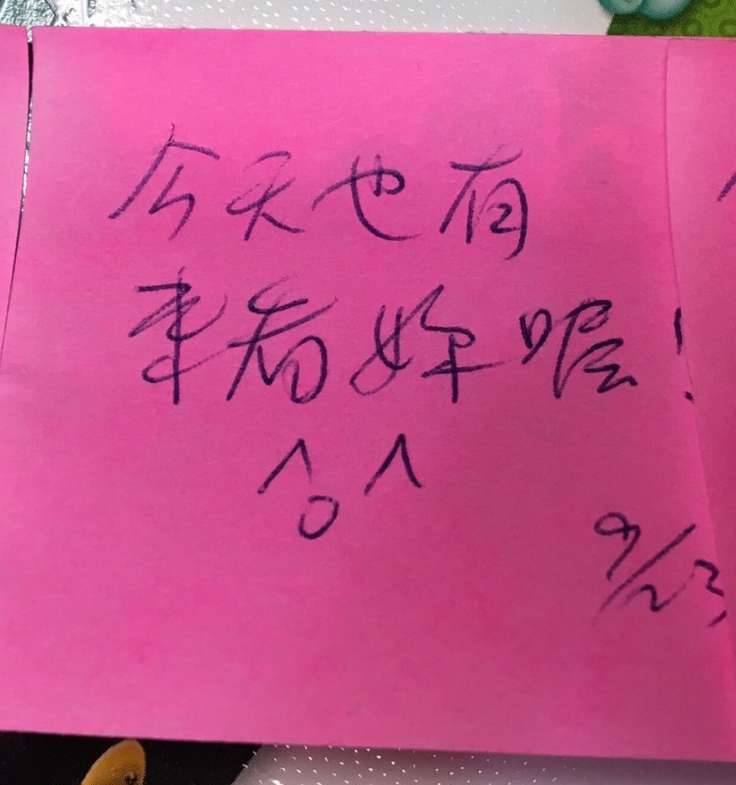 今天也有
来看妳喔!
^o^
9/23